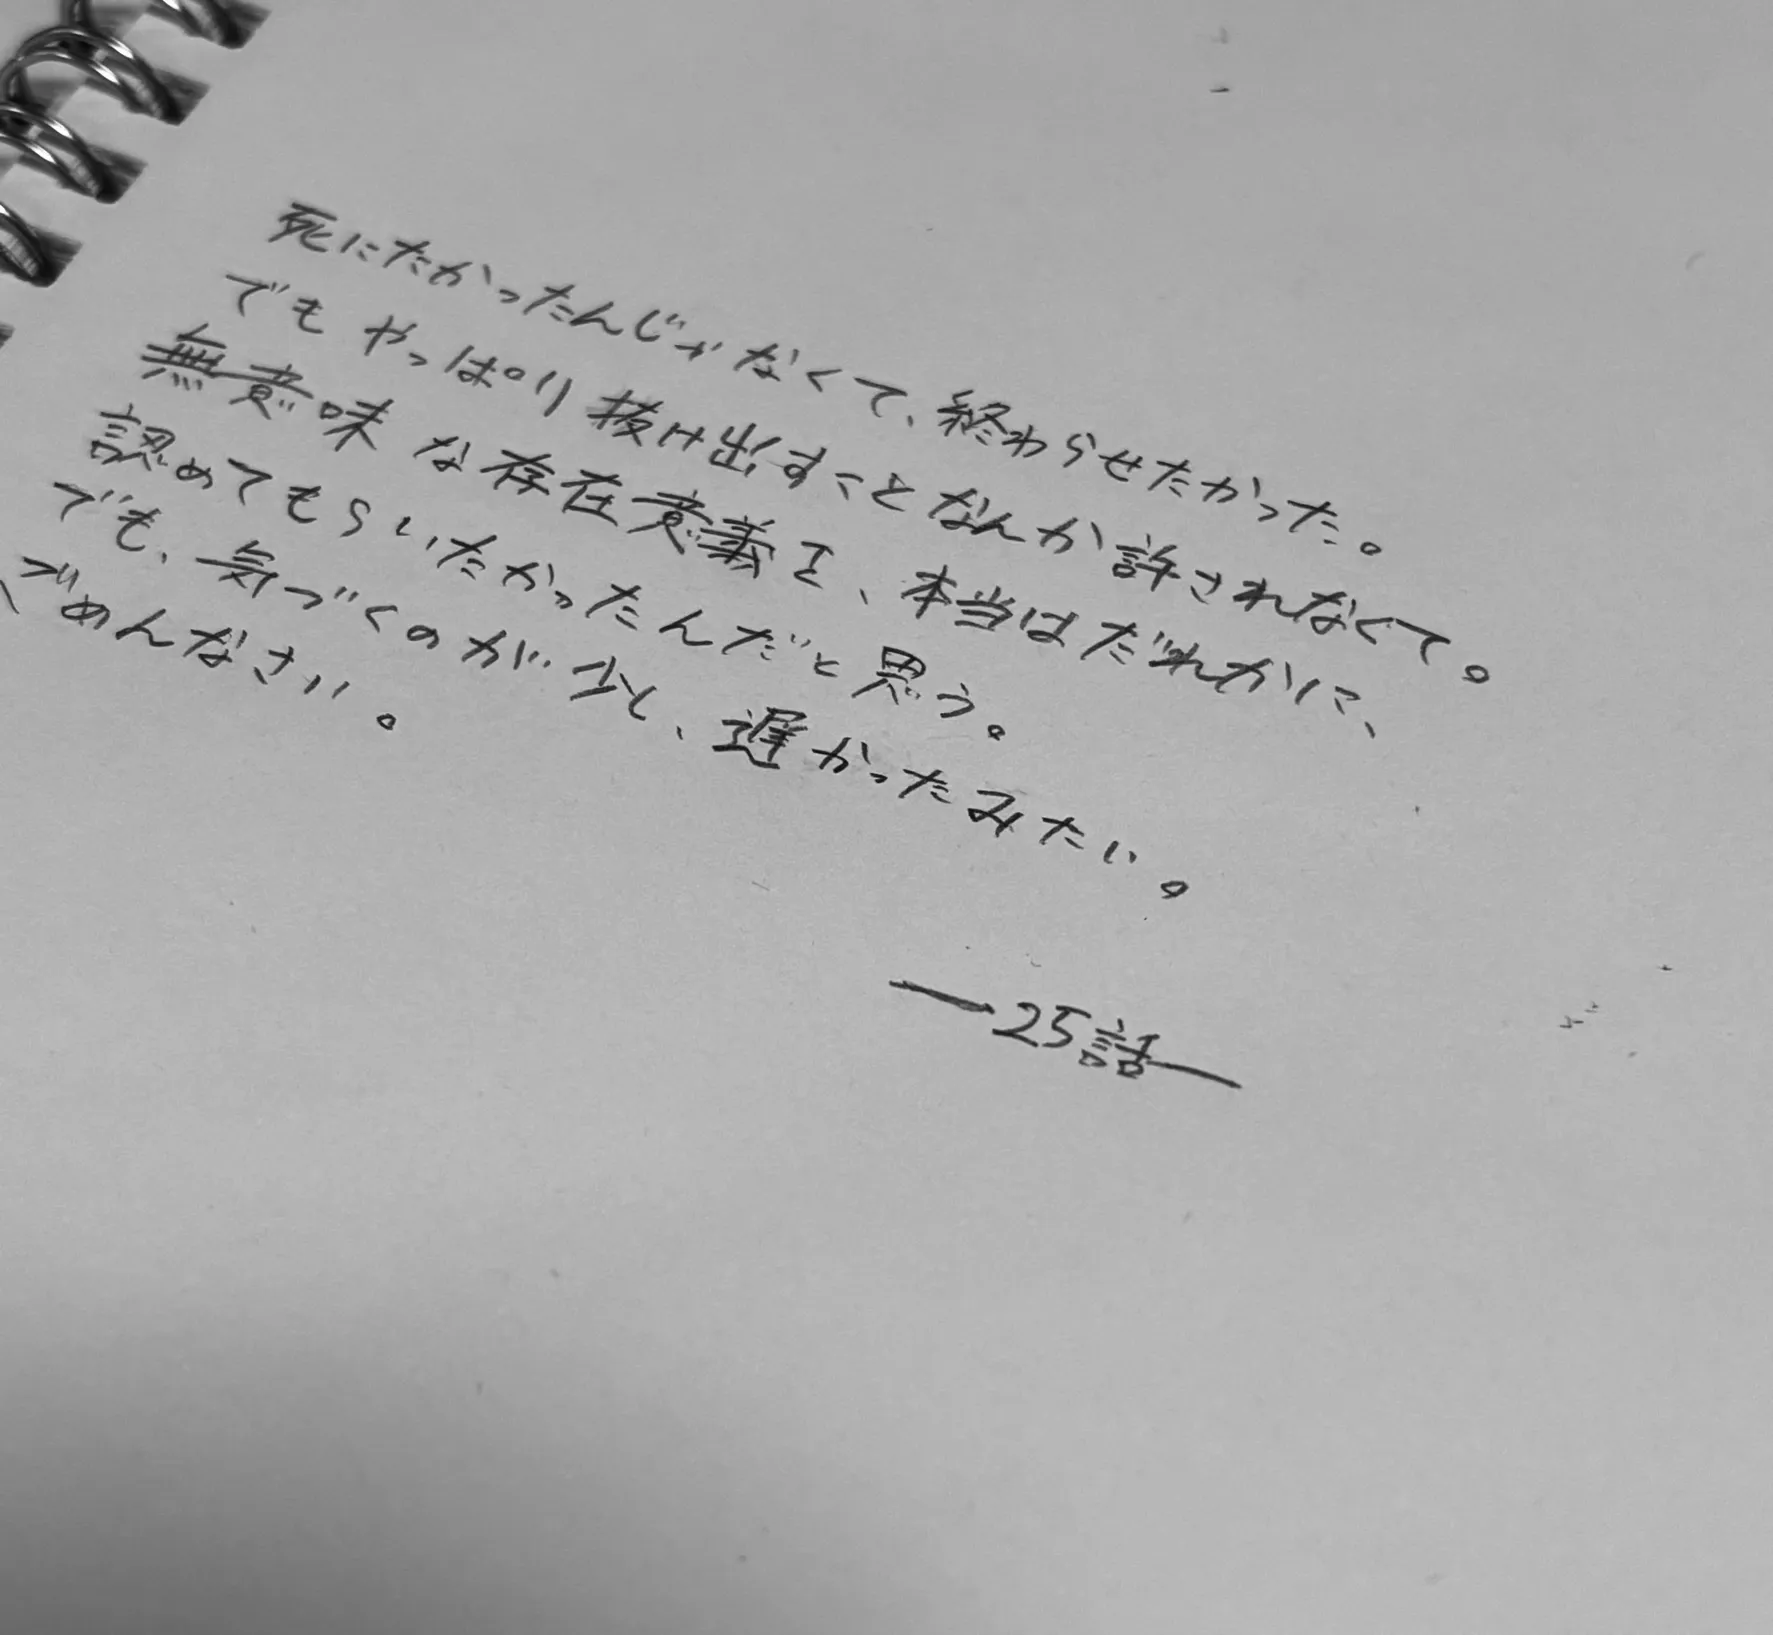 死にたかったんじゃなくて、終わらせたかった。
でもやっぱり抜け出すことなんか許されなくて。
無意味な存在意義を、本当はだれかに、
認めてもらいたかったんだと思う。
でも、気づくのが少し、遅かったみたい。
ごめんなさい。
—25話—